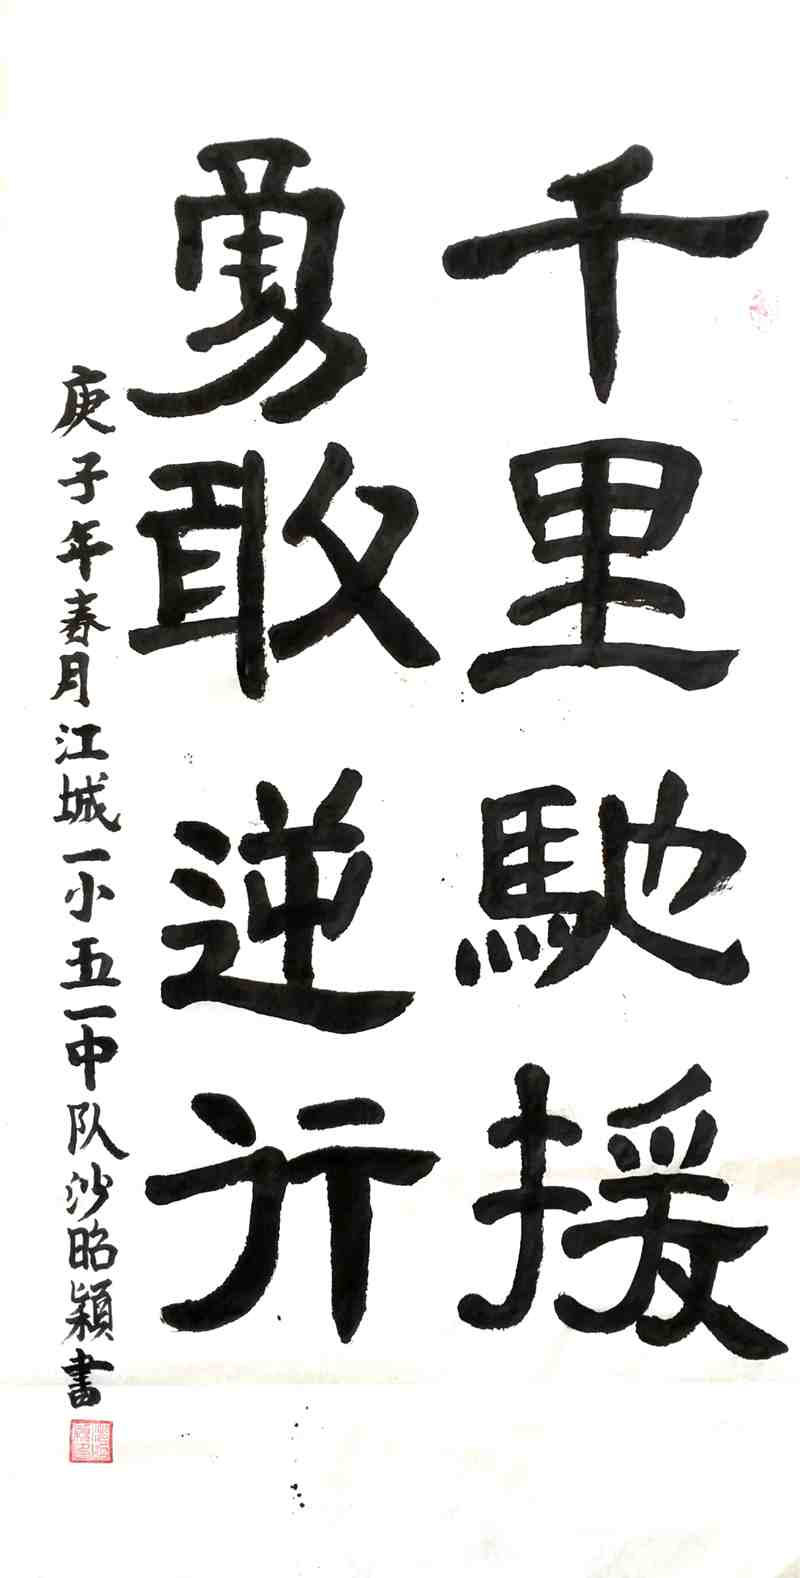 千里馳援
勇敢逆行
庚子年春月江城一小五一中队沙昭穎書